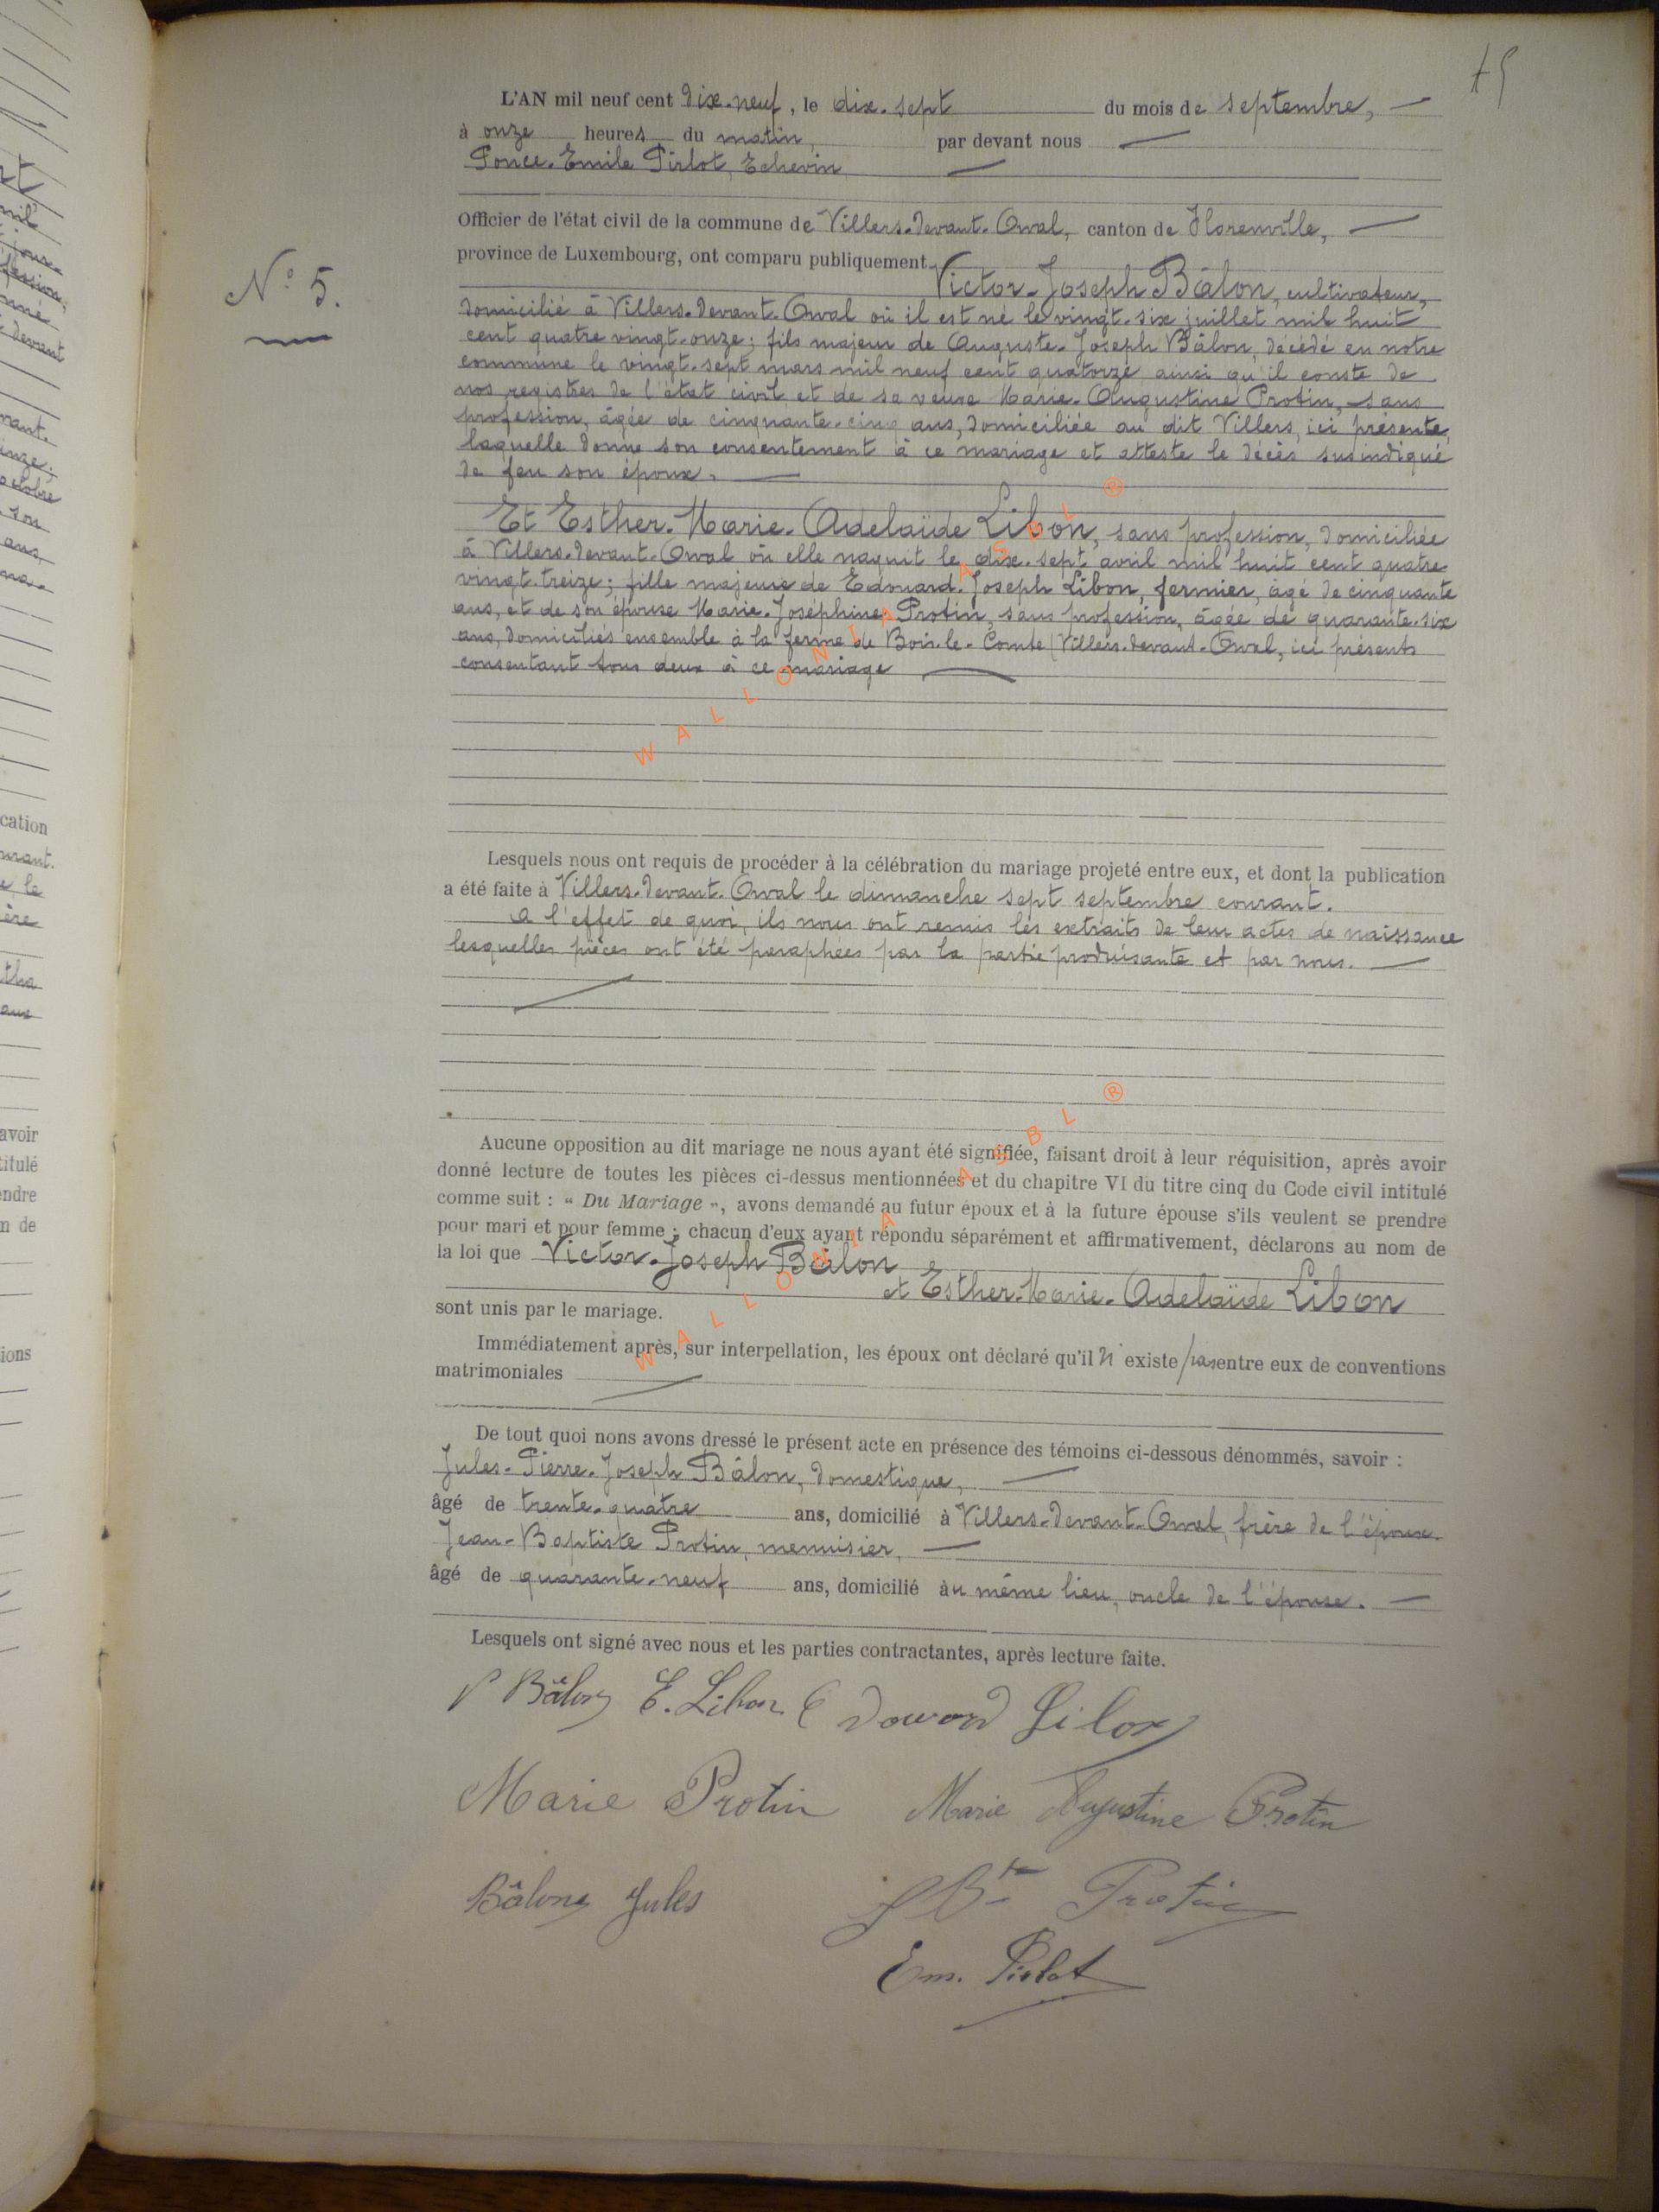 15
L'AN mil neuf cent dix-neuf, le dix-sept du mois de septembre,
à onze heures du matin, par devant nous
Ponce-Emile Pirlot, Echevin
Officier de l'état civil de la commune de Villers-devant-Orval, canton de Florenville,
province de Luxembourg, ont comparu publiquement
N° 5.
Victor-Joseph Bâlon, cultivateur,
domicilié à Villers-devant-Orval où il est né le vingt-six juillet mil huit
cent quatre vingt-onze; fils majeur de Auguste-Joseph Bâlon, décédé en notre
commune le vingt-sept mars mil neuf cent quatorze ainsi qu'il conste de
nos registres de l'état civil, et de sa veuve Marie-Augustine Protin, sans
profession, âgée de cinquante-cinq ans, domiciliée au dit Villers, ici présente,
laquelle donne son consentement à ce mariage et atteste le décès susindiqué
de feu son époux.
Et Esther-Marie-Adelaïde Libon, sans profession, domiciliée
à Villers-devant-Orval où elle naquit le dix-sept avril mil huit cent quatre
vingt-treize; fille majeure de Edouard-Joseph Libon, fermier, âgé de cinquante
ans, et de son épouse Marie-Joséphine Protin, sans profession, âgée de quarante-six
ans, domiciliés ensemble à la ferme de Bois-le-Comte (Villers-devant-Orval, ici présents
consentant tous deux à ce mariage
Lesquels nous ont requis de procéder à la célébration du mariage projeté entre eux, et dont la publication
a été faite à Villers-devant-Orval le dimanche sept septembre courant.
A l'effet de quoi, ils nous ont remis les extraits de leur actes de naissance
lesquelles pièces ont été paraphées par la partie produisante et par nous.
Aucune opposition au dit mariage ne nous ayant été signifiée, faisant droit à leur réquisition, après avoir
donné lecture de toutes les pièces ci-dessus mentionnées et du chapitre VI du titre cinq du Code civil intitulé
comme suit : « Du Mariage », avons demandé au futur époux et à la future épouse s'ils veulent se prendre
pour mari et pour femme ; chacun d'eux ayant répondu séparément et affirmativement, déclarons au nom de
la loi que Victor-Joseph Bâlon
et Esther-Marie-Adelaïde Libon
sont unis par le mariage.
Immédiatement après, sur interpellation, les époux ont déclaré qu'il n'existe pas entre eux de conventions
matrimoniales
De tout quoi nons avons dressé le présent acte en présence des témoins ci-dessous dénommés, savoir :
Jules-Pierre-Joseph Bâlon, domestique,
âgé de trente-quatre ans, domicilié à Villers-devant-Orval, frère de l'époux.
Jean-Baptiste Protin, menuisier,
âgé de quarante-neuf ans, domicilié au même lieu, oncle de l'épouse.
Lesquels ont signé avec nous et les parties contractantes, après lecture faite.
V Bâlon E. Libon Edouard Libon
Marie Protin Marie Augustine Protin
Bâlon Jules J Bte Protin
Em. Pirlot
WALLONIA ASBL ®
WALLONIA ASBL ®
cation
avoir
titulé
endre
m de
ions